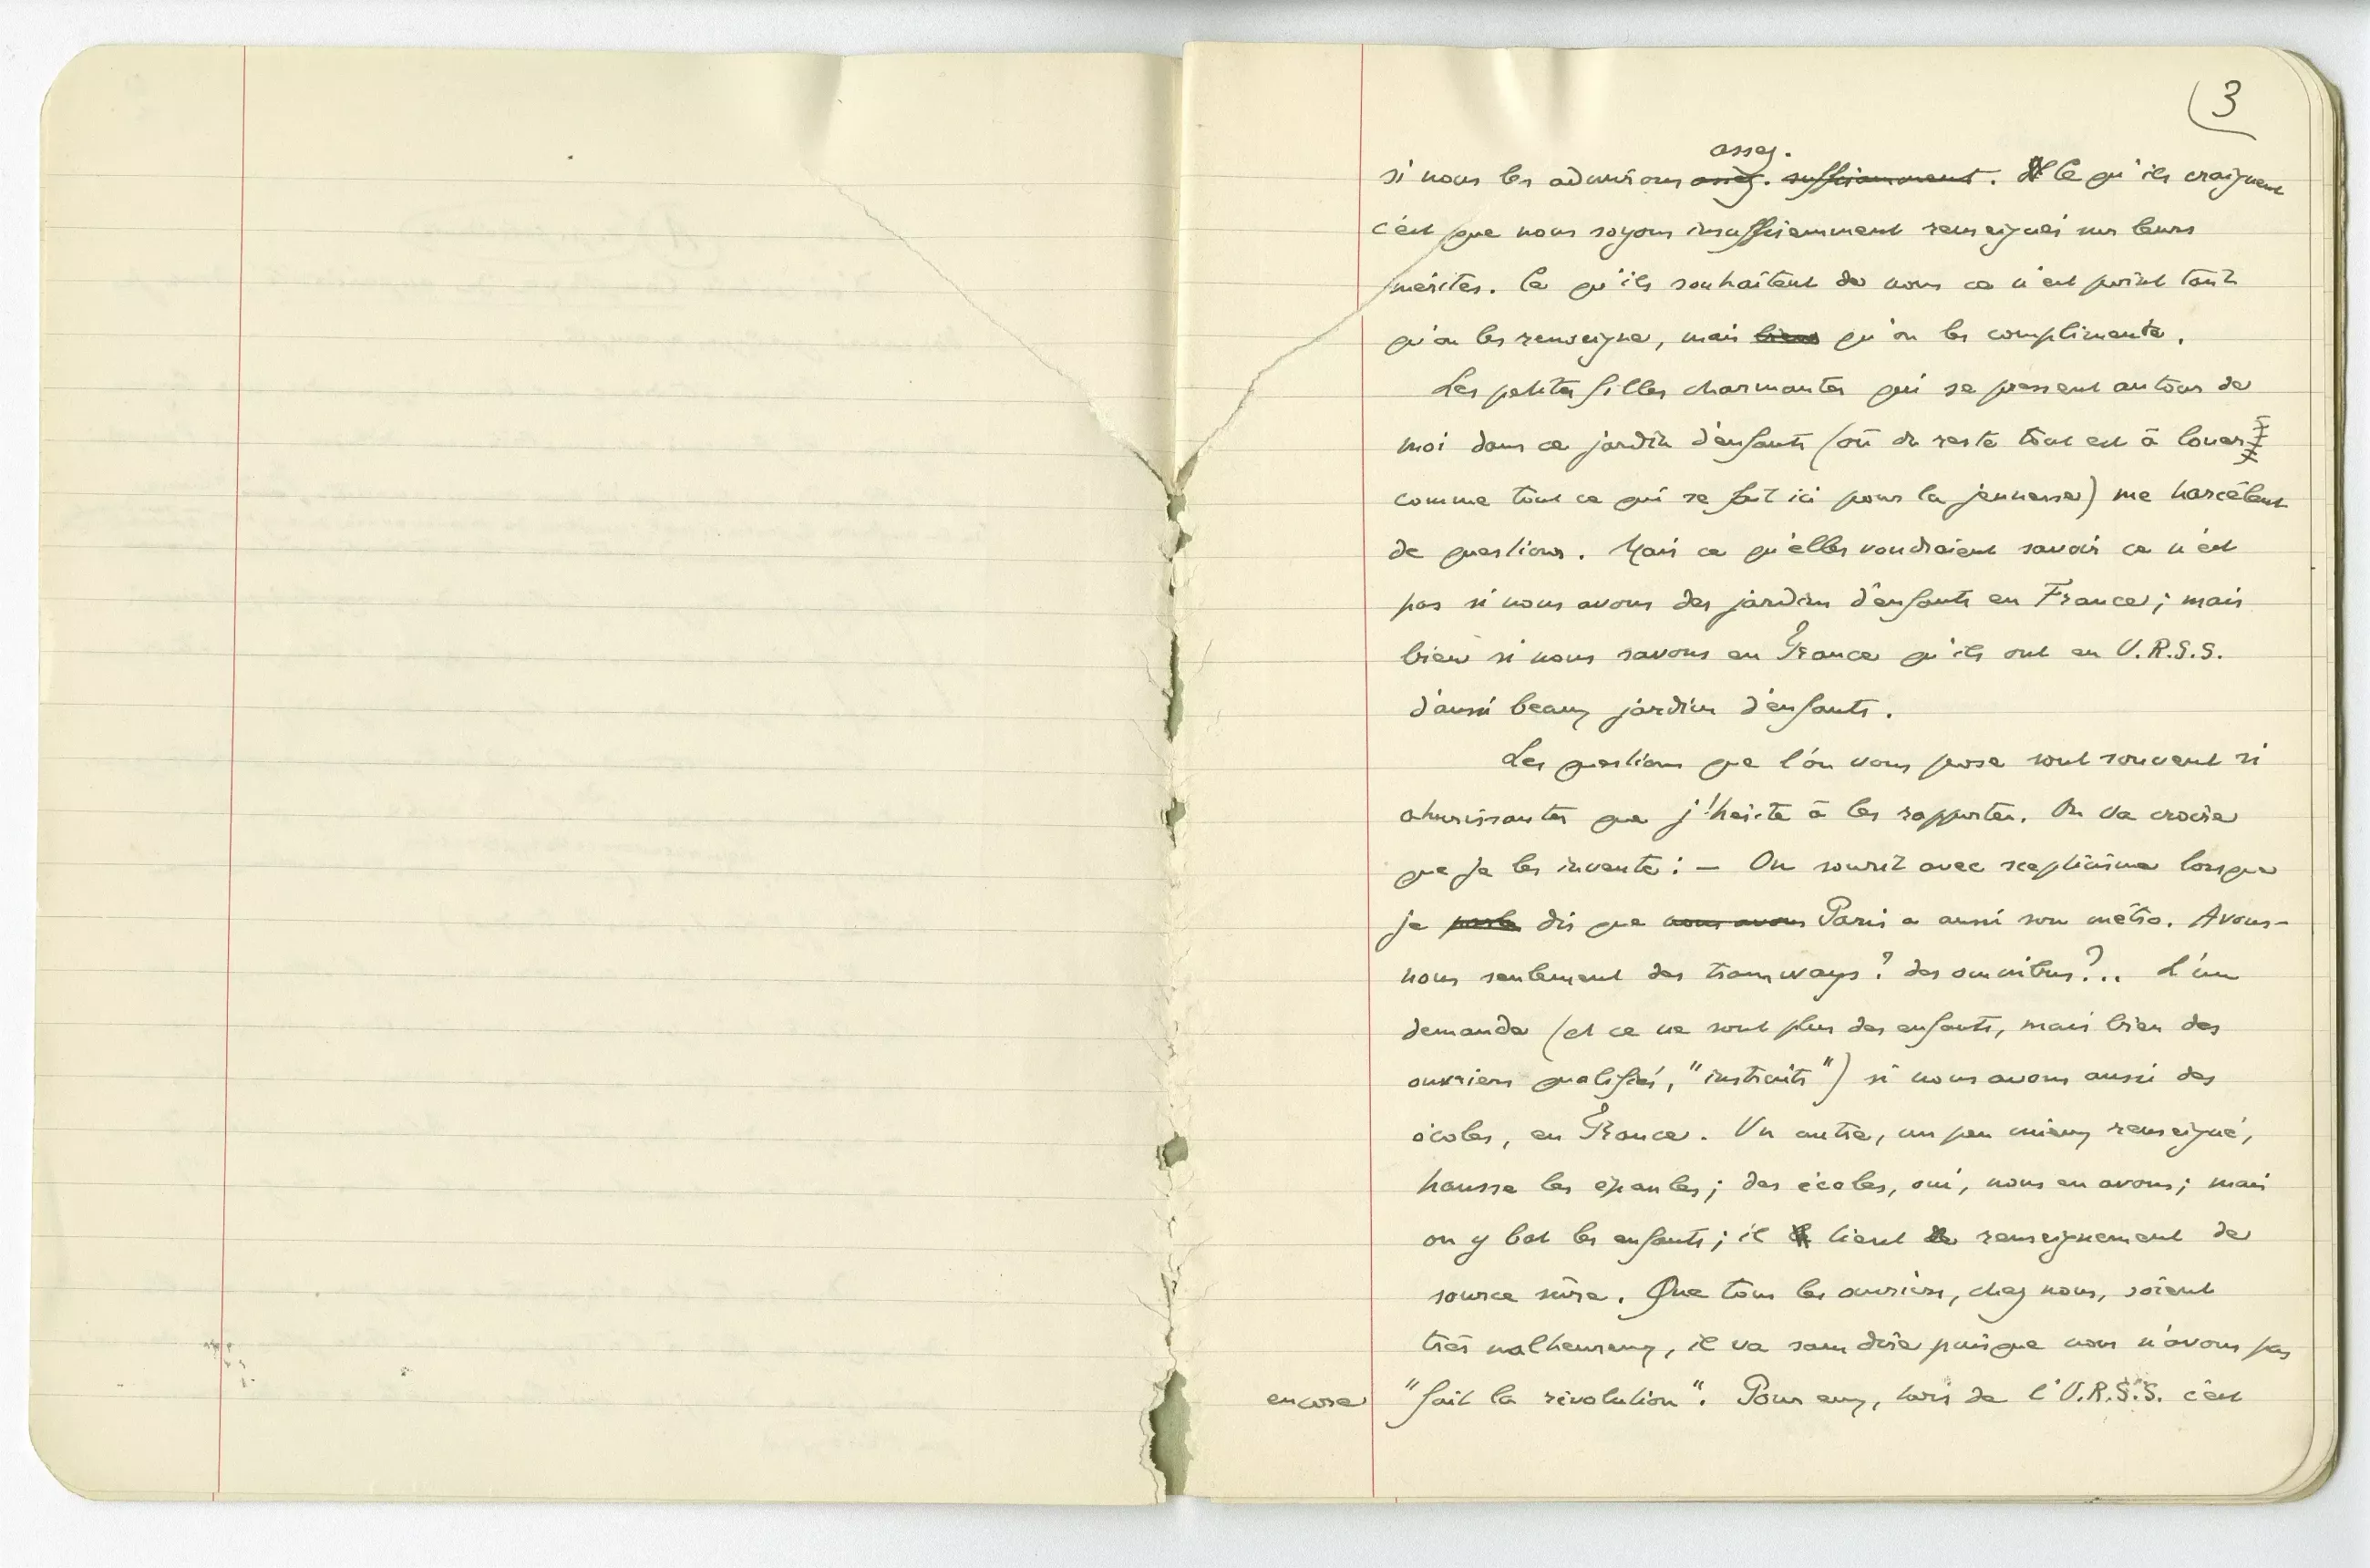 3
assez.
si nous les admirions assez. suffisamment. Ce qu'ils craignent
c'est que nous soyons insuffisamment renseignés sur leurs
mérites. Ce qu'ils souhaitent de nous ce n'est point tant
qu'on les renseigne, mais bien qu'on les complimente.
Les petites filles charmantes qui se pressent autour de
moi dans ce jardin d'enfants (où du reste tout est à louer
comme tout ce qui se fait ici pour la jeunesse) me harcèlent
de questions. Mais ce qu'elles voudraient savoir ce n'est
pas si nous avons des jardins d'enfants en France; mais
bien si nous savons en France qu'ils ont en U.R.S.S.
d'aussi beaux jardins d'enfants.
Les questions que l'on vous pose sont souvent si
ahurissantes que j'hésite à les rapporter. On va croire
que je les invente: — On sourit avec scepticisme lorsque
je parle dis que nous avons Paris a aussi son métro. Avons-
nous seulement des tramways? des omnibus?.. L'un
demande (et ce ne sont plus des enfants, mais bien des
ouvriers qualifiés, "instruits") si nous avons aussi des
écoles, en France. Un autre, un peu mieux renseigné,
hausse les épaules; des écoles, oui, nous en avons; mais
on y bat les enfants; il tient renseignement de
source sûre. Que tous les ouvriers, chez nous, soient
très malheureux, il va sans dire puisque nous n'avons pas
encore "fait la révolution". Pour eux, hors de l'U.R.S.S. c'est